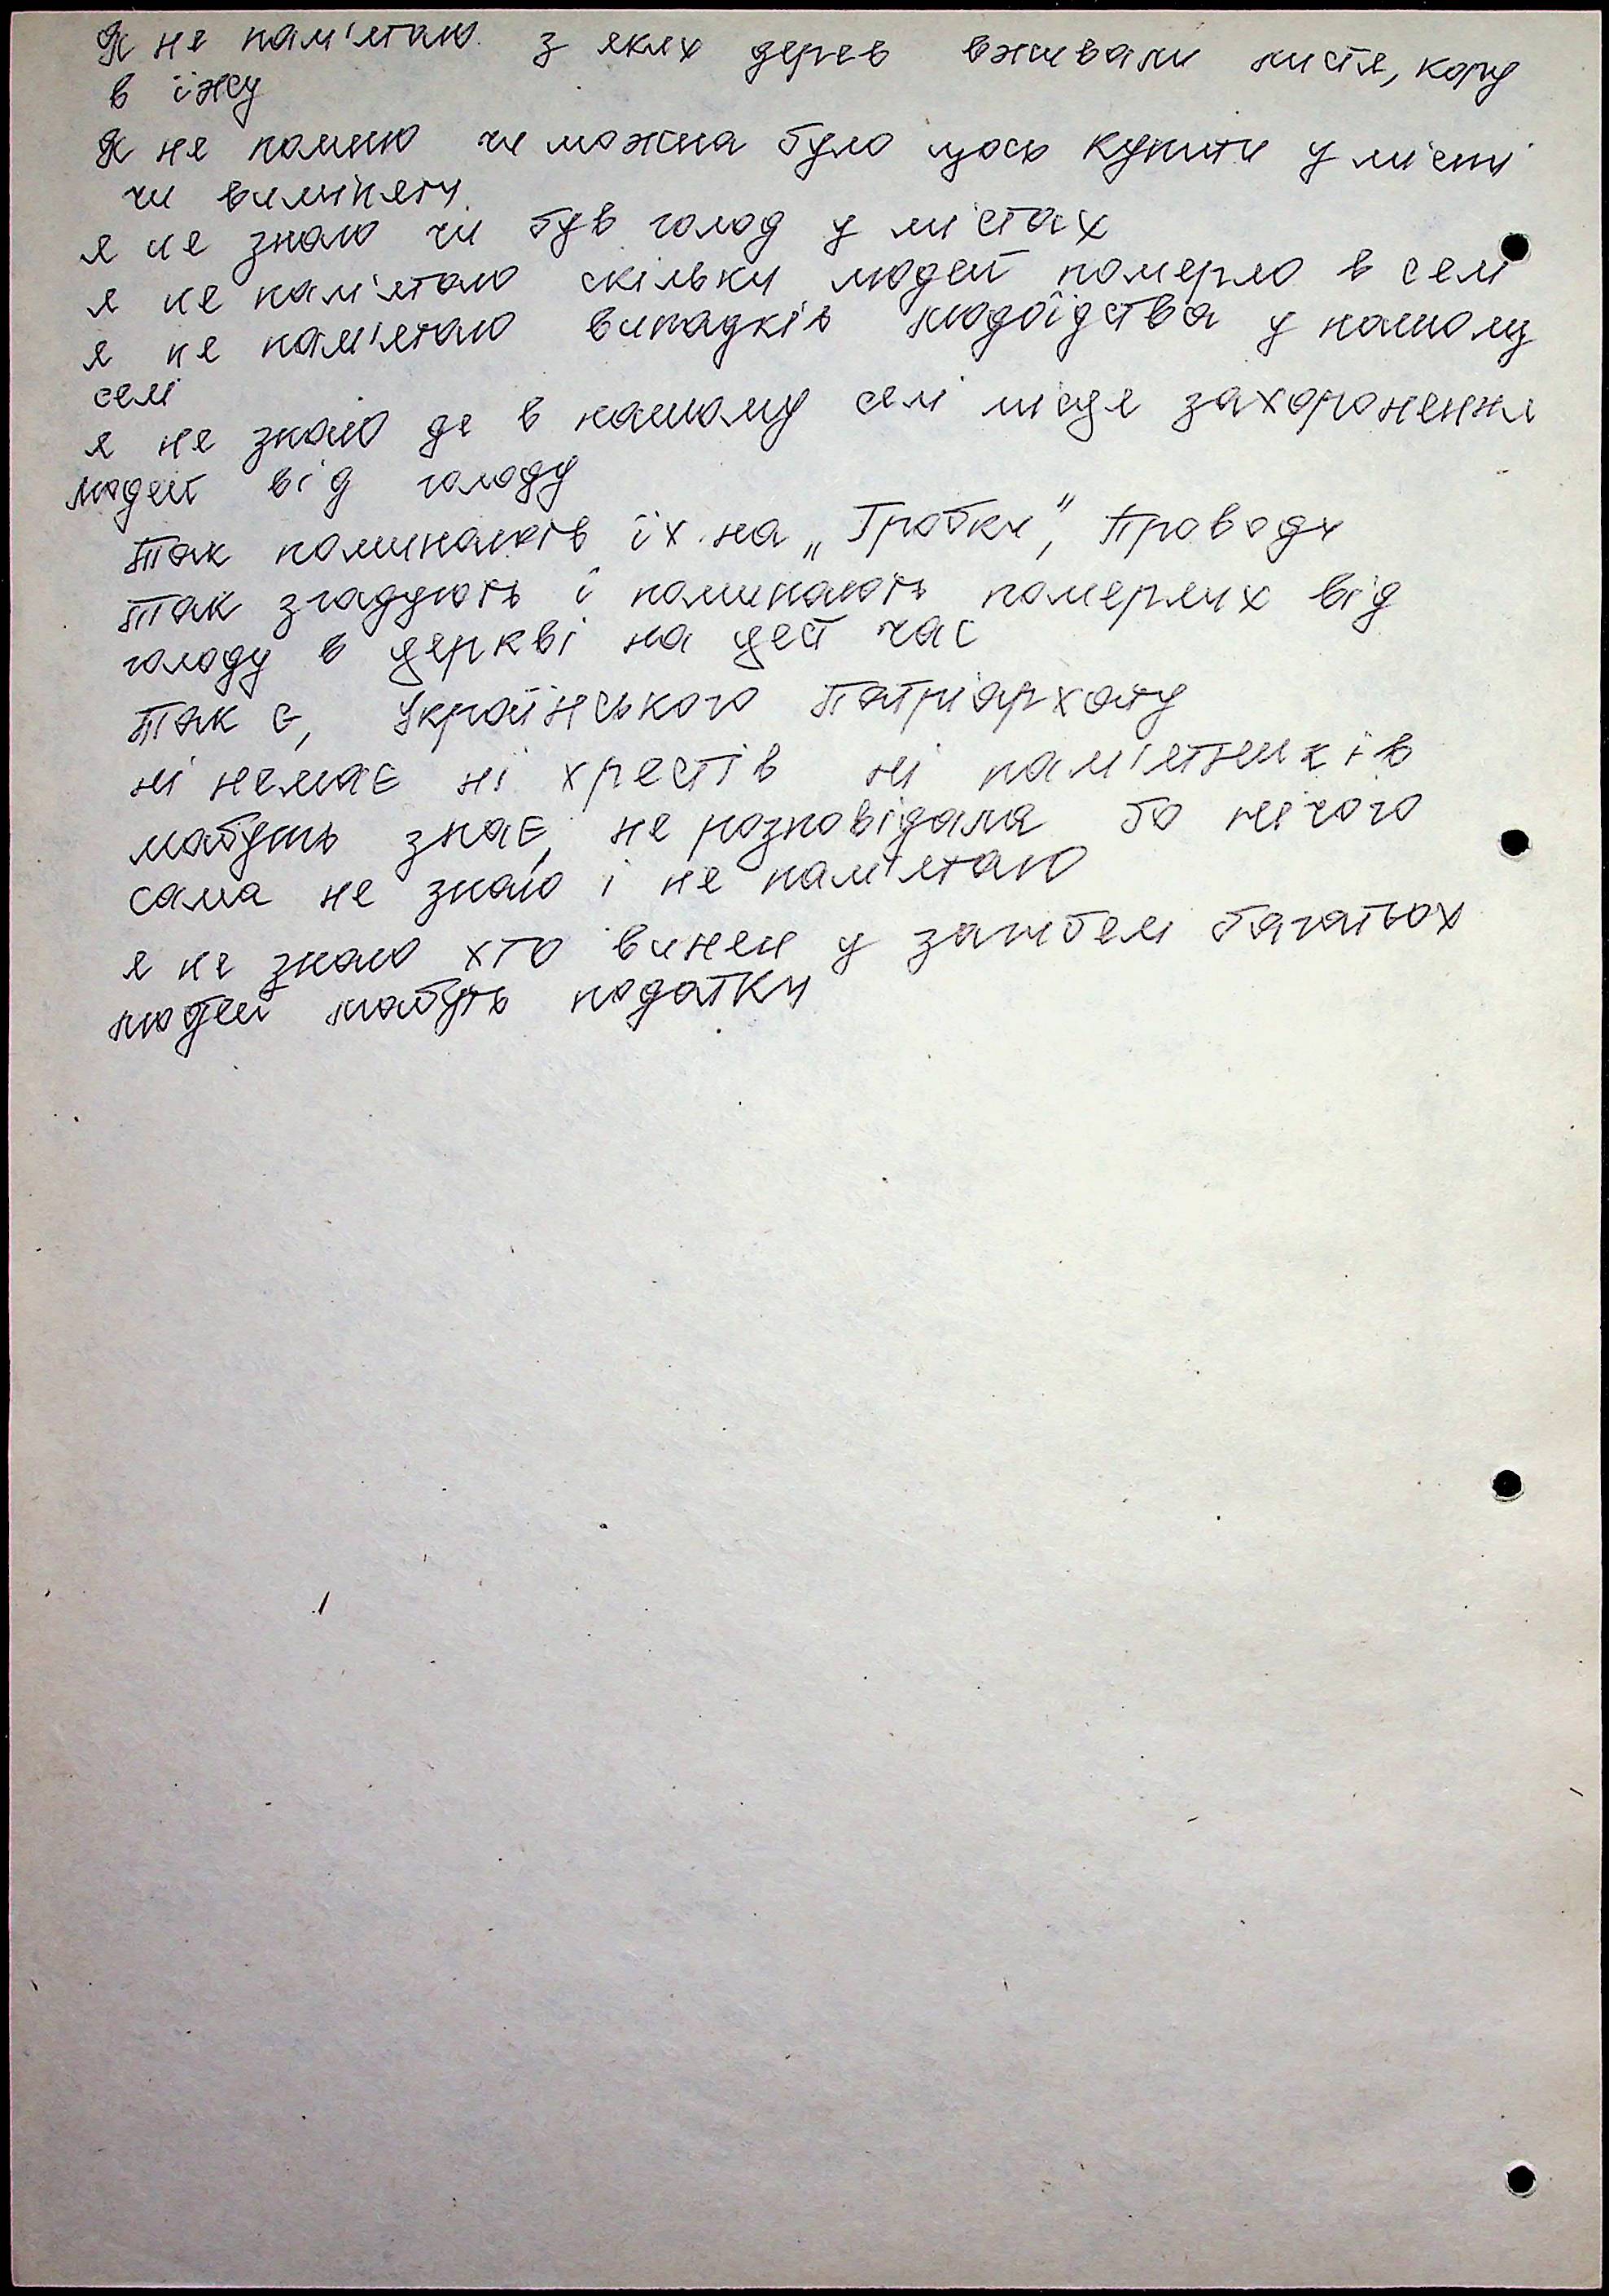 Я не пам'ятаю з яких дерев вживали листя, кору
в їжу
Я не помню чи можна було щось купити у місті
чи виміняти.
я не знаю чи був голод у містах
я не пам'ятаю скільки людей померло в селі
я не пам'ятаю випадків людоїдства у нашому
селі
я не знаю де в нашому селі місце захоронення
людей від голоду
так поминають їх на „Гробки", Проводи
так згадують і поминають померлих від
голоду в церкві на цей час
так є, Українського Патріархату
ні немає ні хрестів ні пам'ятників
мабуть знає, не розповідала бо нічого
сама не знаю і не пам'ятаю
я не знаю хто винен у загибелі багатьох
людей мабуть податки